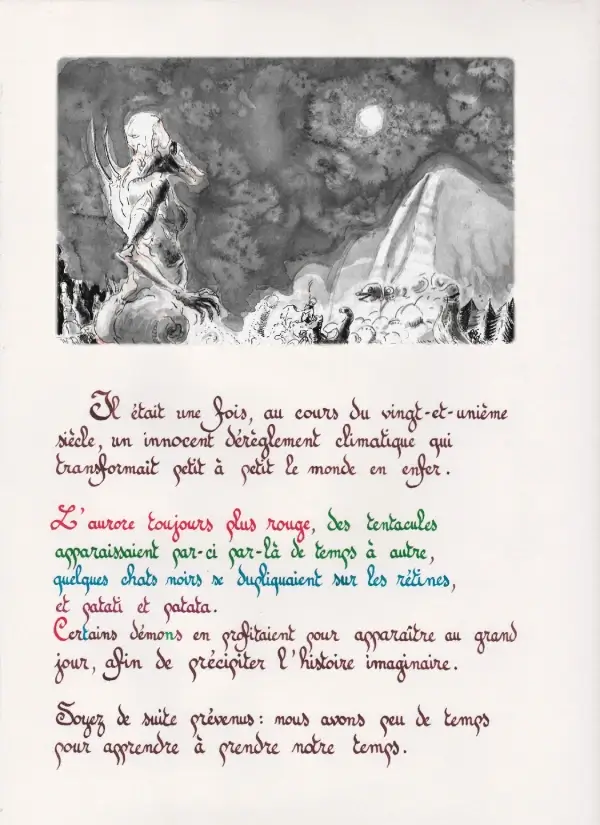 Il était une fois, au cours du vingt-et-unième
siècle, un innocent dérèglement climatique qui
transformait petit à petit le monde en enfer.
L'aurore toujours plus rouge, des tentacules
apparaissaient par-ci par-là de temps à autre,
quelques chats noirs se dupliquaient sur les rétines,
et patati et patata.
Certains démons en profitaient pour apparaître au grand
jour, afin de précipiter l'histoire imaginaire.
Soyez de suite prévenus : nous avons peu de temps
pour apprendre à prendre notre temps.